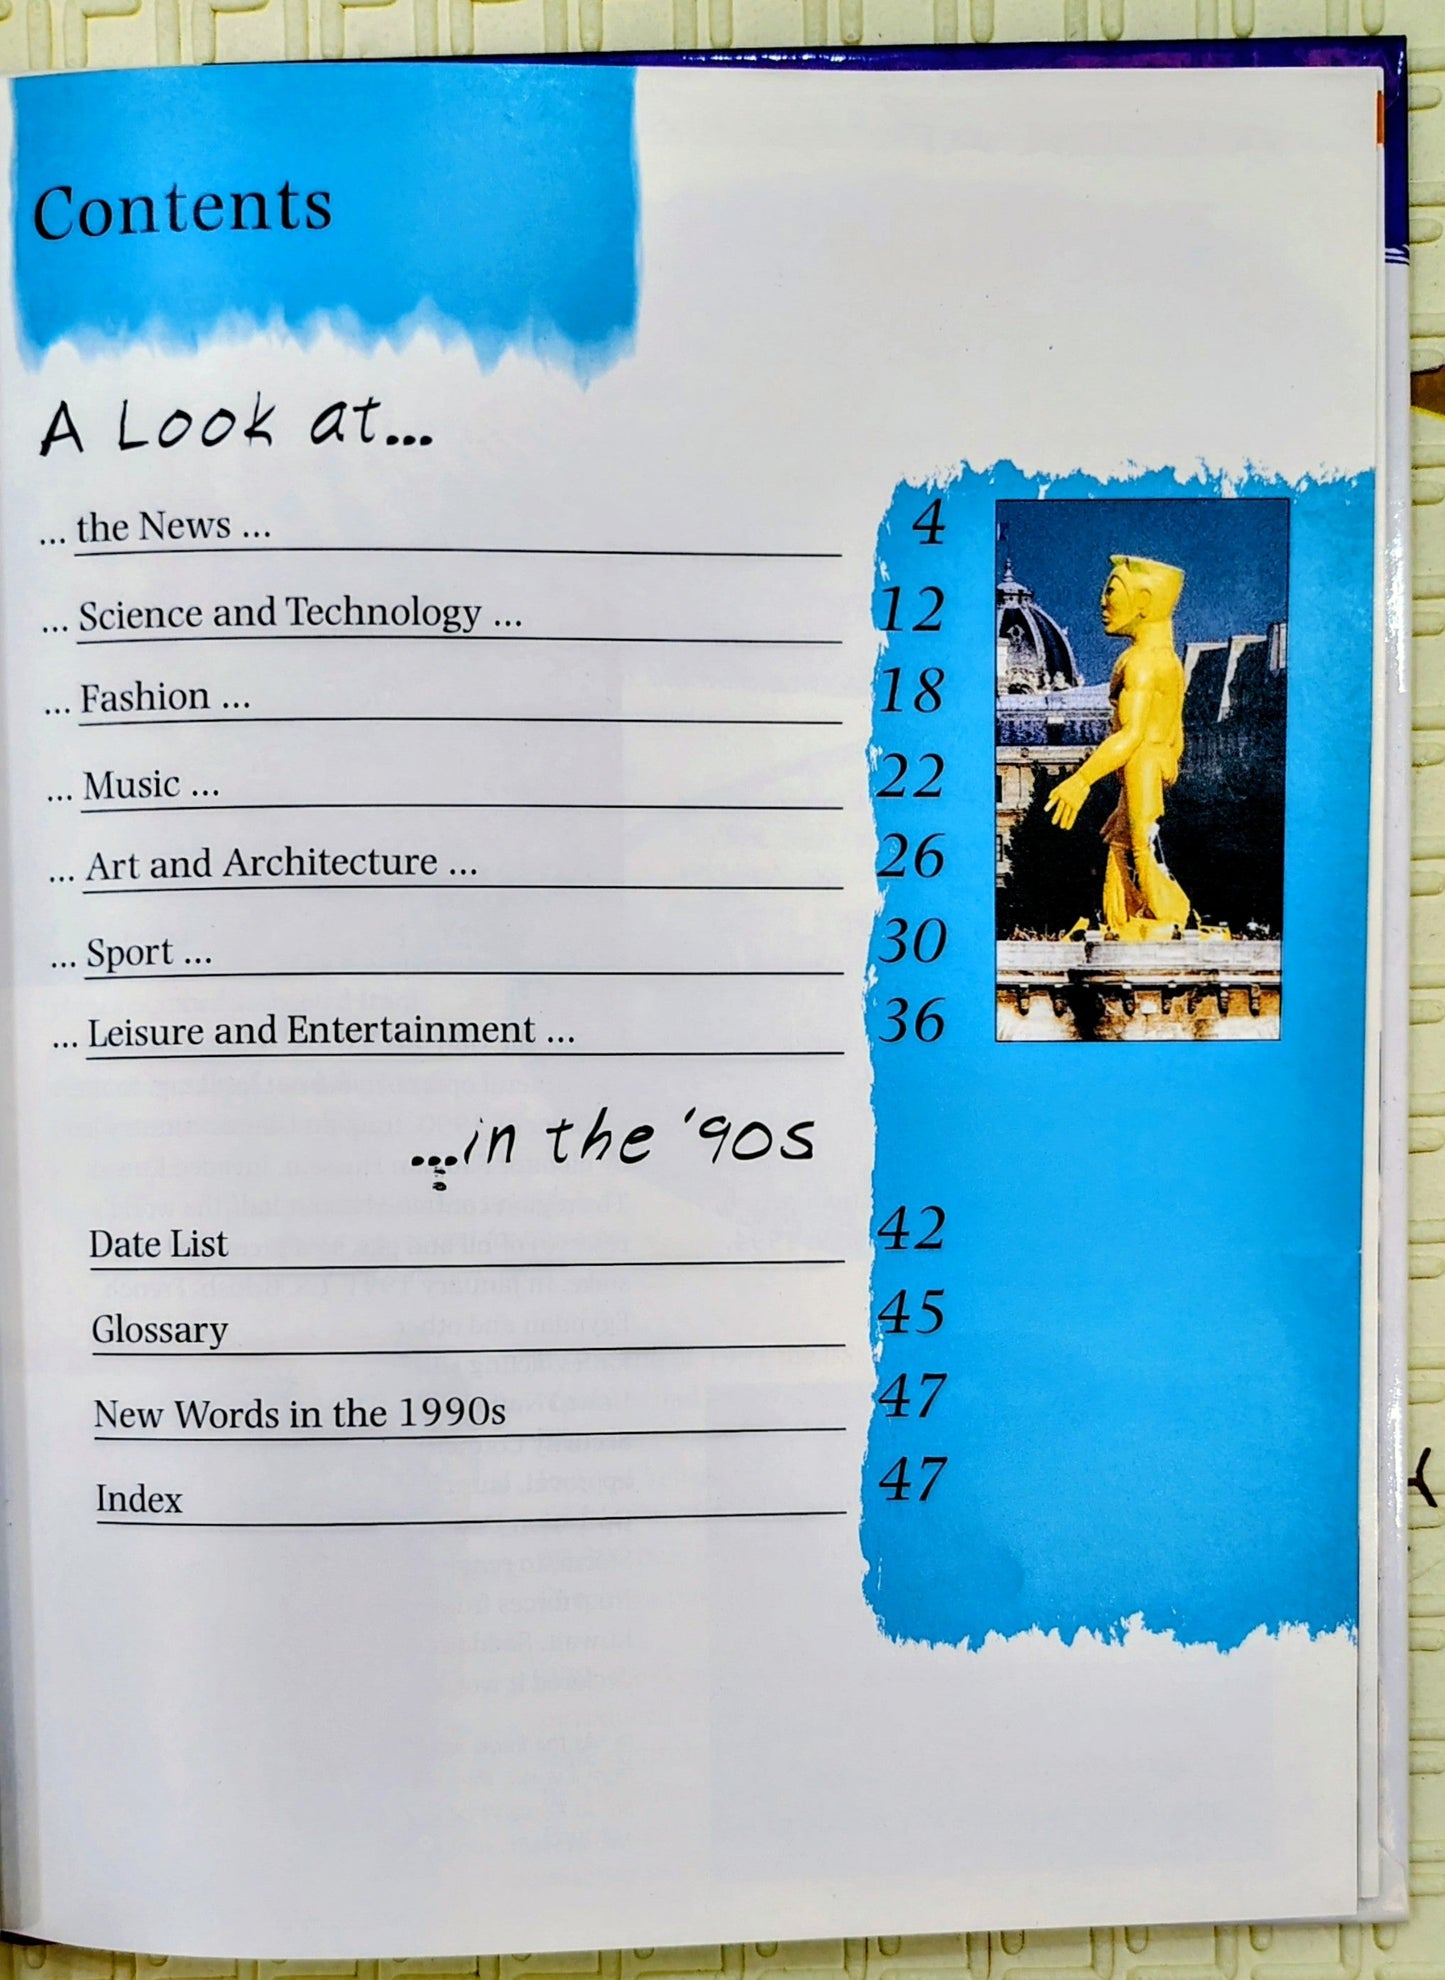 Contents
A Look at...
... the News ... 4
... Science and Technology ... 12
... Fashion ... 18
... Music ... 22
... Art and Architecture ... 26
... Sport ... 30
... Leisure and Entertainment ... 36
...in the '90s
Date List 42
Glossary 45
New Words in the 1990s 47
Index 47